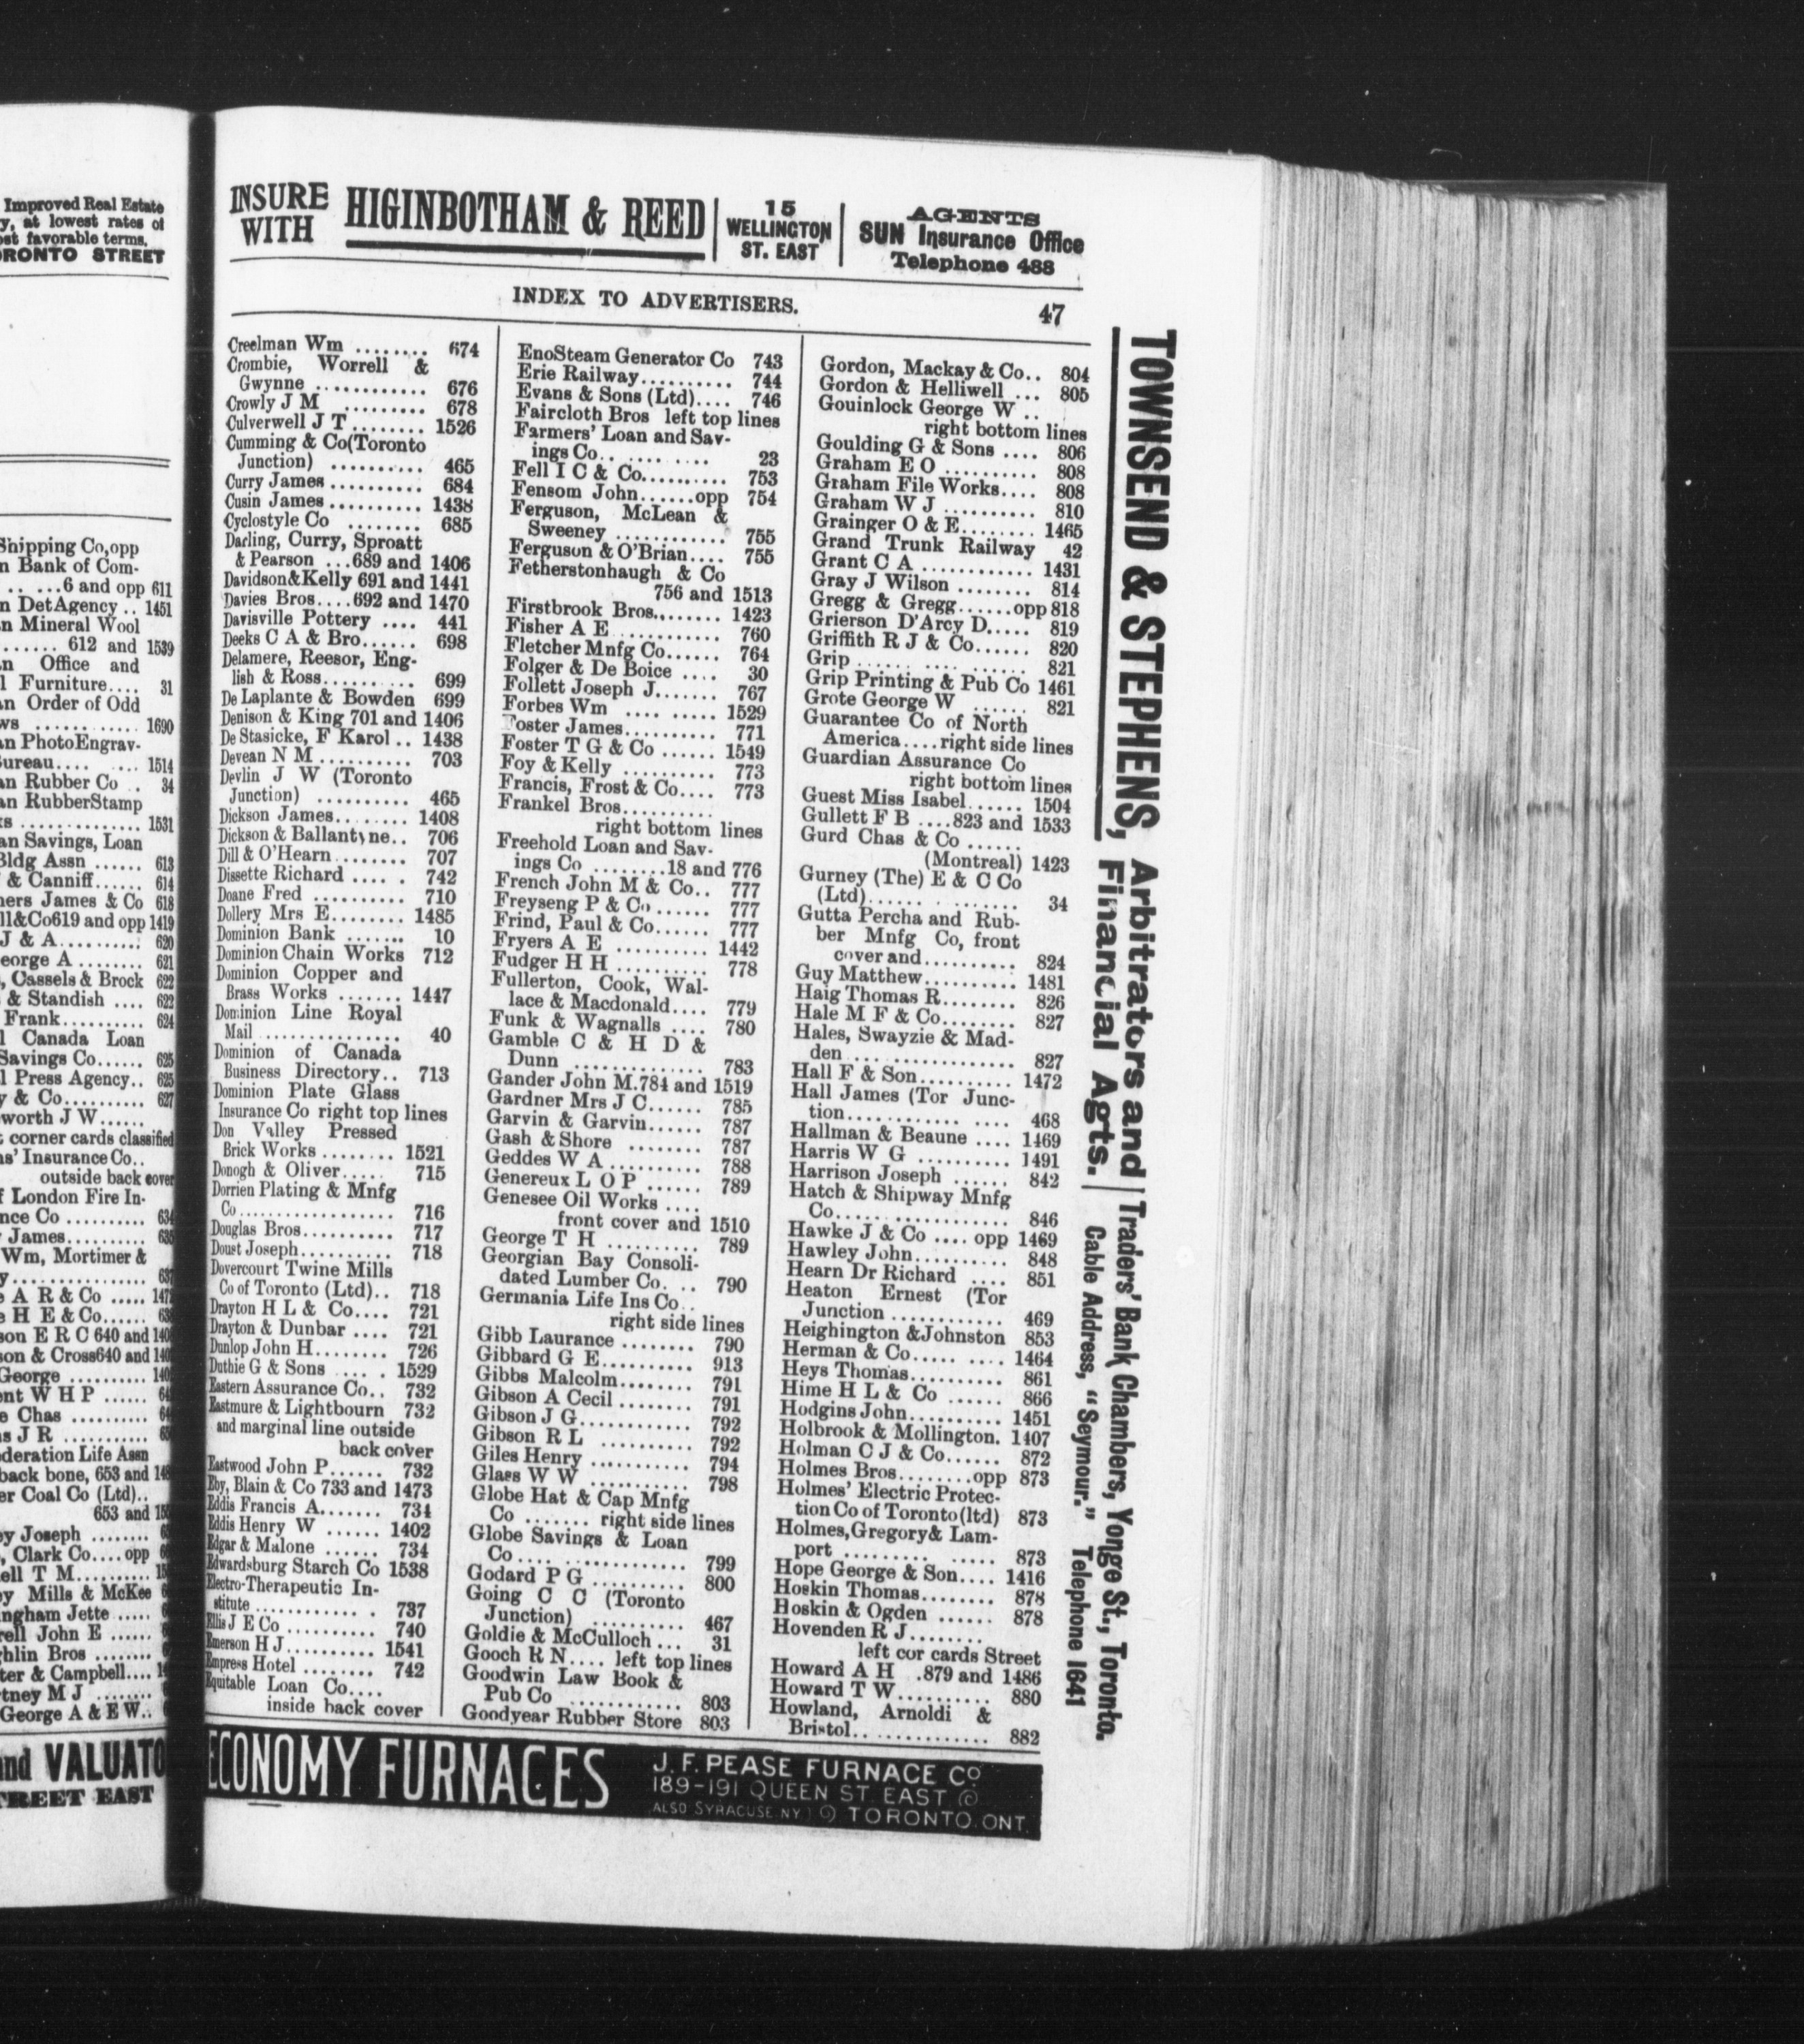 Improved Real Estate
y, at lowest rates of
ost favorable terms.
RONTO STREET
Shipping Co,opp
n Bank of Com-
.. ...6 and opp 611
n DetAgency .. 1451
n Mineral Wool
....... 612 and 1539
n Office and
l Furniture.... 31
n Order of Odd
ws .......... 1690
an PhotoEngrav-
ureau.... .... 1514
an Rubber Co .. 34
an RubberStamp
ks .............. 1531
an Savings, Loan
Bldg Assn ...... 613
& Canniff...... 614
ners James & Co 618
ll&Co619 and opp 1419
J & A.......... 620
eorge A ........ 621
, Cassels & Brock 622
& Standish .... 622
Frank.......... 624
l Canada Loan
Savings Co...... 625
l Press Agency.. 625
y & Co.......... 627
worth J W......
t corner cards classified
ns' Insurance Co..
outside back cover
f London Fire In-
nce Co .......... 634
James.......... 635
Wm, Mortimer &
y............... 637
e A R & Co ..... 147
e H E & Co...... 638
son E R C 640 and 140
son & Cross640 and 140
George .......... 140
ent W H P ...... 64
e Chas .......... 64
as J R ........... 65
deration Life Assn
back bone, 653 and 148
er Coal Co (Ltd)..
653 and 15
ey Joseph ........ 6
, Clark Co....opp 6
ell T M.......... 15
by Mills & McKee 6
ingham Jette ..... 6
rell John E ...... 6
hlin Bros ........ 6
ter & Campbell.... 1
tney M J ........
George A & E W..
and VALUATO
TREET EAST
INSURE WITH HIGINBOTHAM & REED 15 WELLINGTON ST. EAST AGENTS SUN Insurance Office Telephone 488
INDEX TO ADVERTISERS. 47
Creelman Wm ........ 674
Crombie, Worrell &
Gwynne ............ 676
Crowly J M ......... 678
Culverwell J T ........ 1526
Cumming & Co(Toronto
Junction) .......... 465
Curry James .......... 684
Cusin James .......... 1438
Cyclostyle Co ........ 685
Darling, Curry, Sproatt
& Pearson ...689 and 1406
Davidson&Kelly 691 and 1441
Davies Bros....692 and 1470
Davisville Pottery .... 441
Deeks C A & Bro...... 698
Delamere, Reesor, Eng-
lish & Ross.......... 699
De Laplante & Bowden 699
Denison & King 701 and 1406
De Stasicke, F Karol .. 1438
Devean N M .......... 703
Devlin J W (Toronto
Junction) .......... 465
Dickson James........ 1408
Dickson & Ballantyne.. 706
Dill & O'Hearn ........ 707
Dissette Richard .... . 742
Doane Fred .......... 710
Dollery Mrs E........ 1485
Dominion Bank ....... 10
Dominion Chain Works 712
Dominion Copper and
Brass Works ....... 1447
Dominion Line Royal
Mail ............... 40
Dominion of Canada
Business Directory.. 713
Dominion Plate Glass
Insurance Co right top lines
Don Valley Pressed
Brick Works ........ 1521
Donogh & Oliver..... 715
Dorrien Plating & Mnfg
Co.................. 716
Douglas Bros.......... 717
Doust Joseph.......... 718
Dovercourt Twine Mills
Co of Toronto (Ltd).. 718
Drayton H L & Co.... 721
Drayton & Dunbar .... 721
Dunlop John H........ 726
Duthie G & Sons .... . 1529
Eastern Assurance Co.. 732
Eastmure & Lightbourn 732
and marginal line outside
back cover
Eastwood John P...... 732
Eby, Blain & Co 733 and 1473
Eddis Francis A....... 734
Eddis Henry W ...... 1402
Edgar & Malone ...... 734
Edwardsburg Starch Co 1538
Electro-Therapeutic In-
stitute ............ . 737
Ellis J E Co .......... 740
Emerson H J.......... 1541
Empress Hotel ........ 742
Equitable Loan Co....
inside back cover
EnoSteam Generator Co 743
Erie Railway.......... 744
Evans & Sons (Ltd).... 746
Faircloth Bros left top lines
Farmers' Loan and Sav-
ings Co.. .... .... 23
Fell I C & Co......... 753
Fensom John......opp 754
Ferguson, McLean &
Sweeney ............ 755
Ferguson & O'Brian.... 755
Fetherstonhaugh & Co
756 and 1513
Firstbrook Bros........ 1423
Fisher A E ............ 760
Fletcher Mnfg Co...... 764
Folger & De Boice .... 30
Follett Joseph J....... 767
Forbes Wm .... ..... 1529
Foster James.......... 771
Foster T G & Co ...... 1549
Foy & Kelly .......... 773
Francis, Frost & Co.... 773
Frankel Bros..........
right bottom lines
Freehold Loan and Sav-
ings Co ........18 and 776
French John M & Co.. 777
Freyseng P & Co ...... 777
Frind, Paul & Co...... 777
Fryers A E .......... 1442
Fudger H H .......... 778
Fullerton, Cook, Wal-
lace & Macdonald.... 779
Funk & Wagnalls .... 780
Gamble C & H D &
Dunn .............. 783
Gander John M.784 and 1519
Gardner Mrs J C...... 785
Garvin & Garvin...... 787
Gash & Shore ........ 787
Geddes W A .......... 788
Genereux L O P ...... 789
Genesee Oil Works ....
front cover and 1510
George T H .......... 789
Georgian Bay Consoli-
dated Lumber Co. .. 790
Germania Life Ins Co..
right side lines
Gibb Laurance ........ 790
Gibbard G E.......... 913
Gibbs Malcolm........ 791
Gibson A Cecil ........ 791
Gibson J G............ 792
Gibson R L .......... 792
Giles Henry ........... 794
Glass W W ........... 798
Globe Hat & Cap Mnfg
Co ....... right side lines
Globe Savings & Loan
Co.... ............ 799
Godard P G .......... 800
Going C C (Toronto
Junction) .......... 467
Goldie & McCulloch ... 31
Gooch R N.... left top lines
Goodwin Law Book &
Pub Co ............ 803
Goodyear Rubber Store 803
Gordon, Mackay & Co.. 804
Gordon & Helliwell ... 805
Gouinlock George W ..
right bottom lines
Goulding G & Sons .... 806
Graham E O .......... 808
Graham File Works.... 808
Graham W J .......... 810
Grainger O & E........ 1465
Grand Trunk Railway 42
Grant C A ............ 1431
Gray J Wilson ........ 814
Gregg & Gregg......opp 818
Grierson D'Arcy D..... 819
Griffith R J & Co...... 820
Grip ...... .... ...... 821
Grip Printing & Pub Co 1461
Grote George W ...... 821
Guarantee Co of North
America....right side lines
Guardian Assurance Co
right bottom lines
Guest Miss Isabel...... 1504
Gullett F B ....823 and 1533
Gurd Chas & Co ......
(Montreal) 1423
Gurney (The) E & C Co
(Ltd)...... . ........ 34
Gutta Percha and Rub-
ber Mnfg Co, front
cover and.......... 824
Guy Matthew.......... 1481
Haig Thomas R........ 826
Hale M F & Co........ 827
Hales, Swayzie & Mad-
den ................. 827
Hall F & Son.......... 1472
Hall James (Tor Junc-
tion........... .... 468
Hallman & Beaune .... 1469
Harris W G .......... 1491
Harrison Joseph ...... 842
Hatch & Shipway Mnfg
Co.................. 846
Hawke J & Co .... opp 1469
Hawley John.......... 848
Hearn Dr Richard .... 851
Heaton Ernest (Tor
Junction ............ 469
Heighington &Johnston 853
Herman & Co..... .... 1464
Heys Thomas.......... 861
Hime H L & Co ...... 866
Hodgins John.......... 1451
Holbrook & Mollington. 1407
Holman C J & Co...... 872
Holmes Bros........opp 873
Holmes' Electric Protec-
tion Co of Toronto(ltd) 873
Holmes,Gregory& Lam-
port ......... ..... 873
Hope George & Son.... 1416
Hoskin Thomas........ 878
Hoskin & Ogden ...... 878
Hovenden R J........
left cor cards Street
Howard A H .879 and 1486
Howard T W.......... 880
Howland, Arnoldi &
Bristol.............. 882
TOWNSEND & STEPHENS, Arbitrators and Financial Agts. Traders' Bank Chambers, Yonge St., Toronto.
Cable Address, "Seymour." Telephone 1641
ECONOMY FURNACES
J. F. PEASE FURNACE Co
189-191 QUEEN ST. EAST
ALSO SYRACUSE N.Y. TORONTO. ONT.